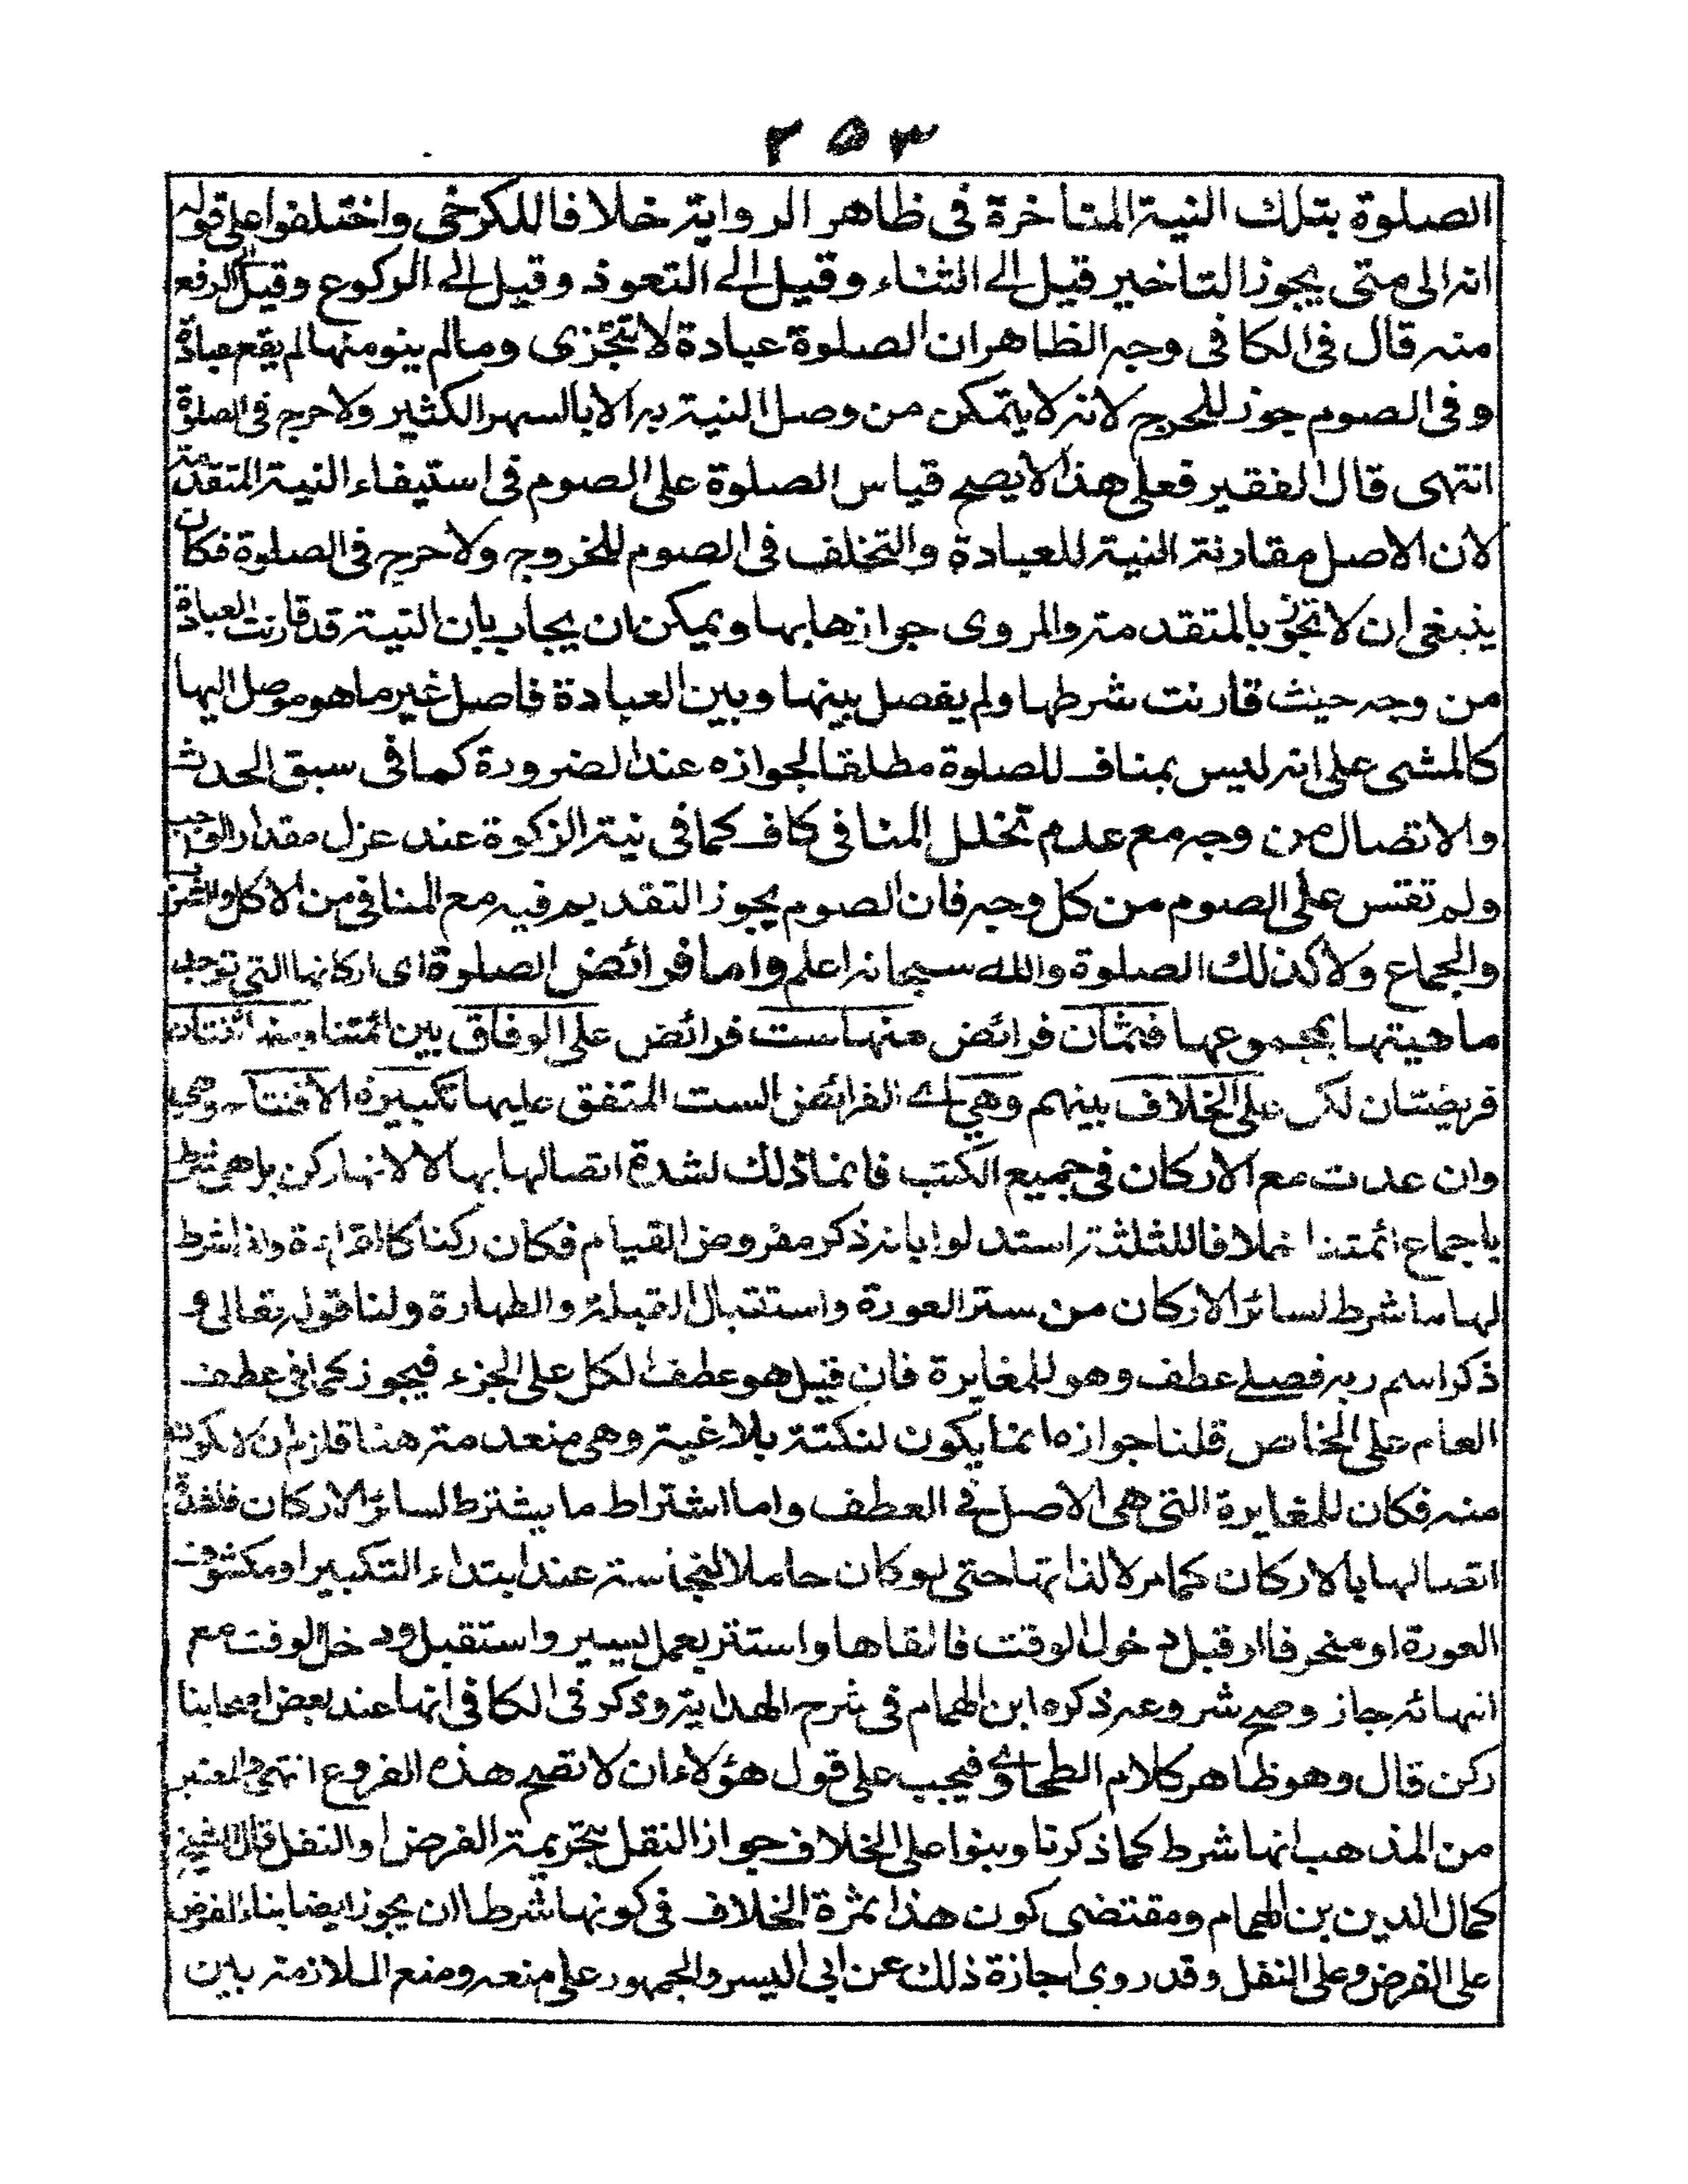 ٢٥٣
الصلوة بتلك النية المتاخرة فى ظاهر الرواية خلافا للكرخى واختلفوا على قوله
انه الى متى يجوز التاخير قيل الى الثناء وقيل الى التعوذ وقيل الى الركوع وقيل الى الرفع
منه قال فى الكافى وجه الظاهر ان الصلوة عبادة لا تتجزى وما لم ينو منها لم يقع عبادة
وفى الصوم جوز للحرج لانه لا يتمكن من وصل النية به الا بالسهر الكثير ولا حرج فى الصلوة
انتهى قال الفقير فعلى هذا لا يصح قياس الصلوة على الصوم فى استيفاء النية المتقدمة
لان الاصل مقارنة النية للعبادة والتخلف فى الصوم للخروج ولا حرج فى الصلوة فكان
ينبغى ان لا تجوز بالمتقدمة والمروى جوازها بها ويمكن ان يجاب بان النية قد قارنت العبادة
من وجه حيث قارنت شرطها ولم يفصل بينها وبين العبادة فاصل غير ما هو موصل اليها
كالمشى على انه ليس بمناف للصلوة مطلقا لجوازه عند الضرورة كما فى سبق الحدث
والاتصال من وجه مع عدم تخلل المنافى كاف كما فى نية الزكوة عند عزل مقدار الواجب
ولم تقس على الصوم من كل وجه فان الصوم يجوز التقديم فيه مع المنافى من الاكل والشرب
والجماع ولا كذلك الصلوة والله سبحانه اعلم واما فرائض الصلوة اى اركانها التى توجد
ماهيتها بمجموعها فثمان فرائض منها ست فرائض على الوفاق بين ائمتنا ومنها اثنتان
فريضتان لكن على الخلاف بينهم وهى اى الفرائض الست المتفق عليها تكبيرة الافتتاح وهى
وان عدت مع الاركان فى جميع الكتب فانما ذلك لشدة اتصالها بها لا لانها ركن بل هى شرط
باجماع ائمتنا خلافا للثلثة استدلوا بانه ذكر مفروض القيام فكان ركنا كالقراءة ولذا شرط
لها ما شرط لسائر الاركان من ستر العورة واستقبال القبلة والطهارة ولنا قوله تعالى و
ذكر اسم ربه فصلى عطف وهو للمغايرة فان قيل هو عطف الكل على الجزء فيجوز كما فى عطف
العام على الخاص قلنا جوازه انما يكون لنكتة بلاغية وهى منعدمة هنا فلزم ان لا يكون
منه فكان للمغايرة التى هى الاصل فى العطف واما اشتراط ما يشترط لسائر الاركان فلشدة
اتصالها بالاركان كما مر لا لذاتها حتى لو كان حاملا لنجاسة عند ابتداء التكبير او مكشوف
العورة او منحرفا او قبل دخول الوقت فالقاها واستتر بعمل يسير واستقبل ودخل الوقت مع
انتهائه جاز وصح شروعه ذكره ابن الهمام فى شرح الهداية وذكر فى الكافى انها عند بعض اصحابنا
ركن قال وهو ظاهر كلام الطحاوى فيجب على قول هؤلاء ان لا تصح هذه الفروع انتهى والمعتبر
من المذهب انها شرط كما ذكرنا وبنوا على الخلاف جواز النفل بتحريمة الفرض او النفل قال الشيخ
كمال الدين بن الهمام ومقتضى كون هذا ثمرة الخلاف فى كونها شرطا ان يجوز ايضا بناء الفرض
على الفرض وعلى النفل وقد روى اجازة ذلك عن ابى اليسر والجمهور على منعه ومنع الملازمة بين